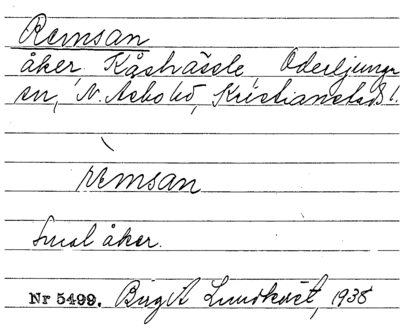 Remsan
åker, Kåshässle, Oderljunga
sn, N. Åsbo hd, Kristianstads l.
remsan
Smal åker.
Nr 5499. Birgit Lundkvist, 1935